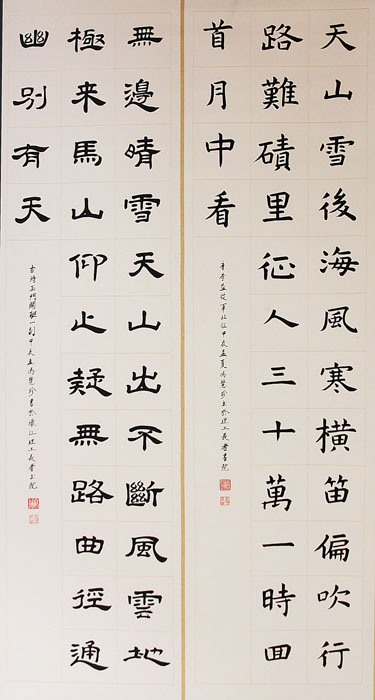 天山雪後海風寒橫笛偏吹行
路難磧里征人三十萬一時回
首月中看
李益從軍北征甲辰孟夏
無邊晴雪天山出不斷風雲地
極来馬山仰止疑無路曲徑通
幽別有天
古詩玉門關聯一副甲辰